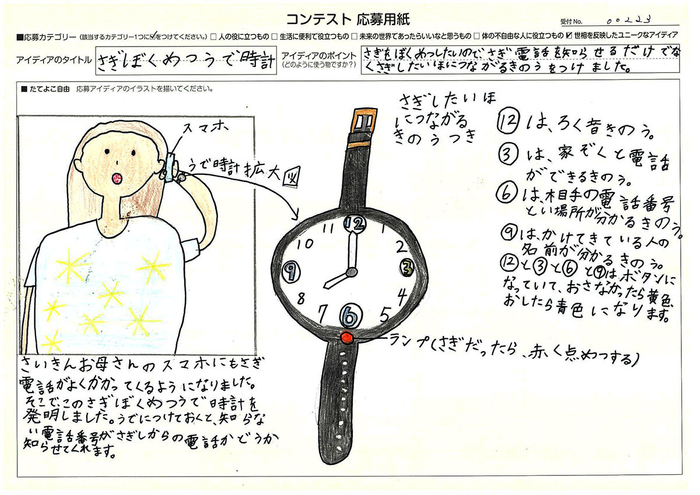 コンテスト 応募用紙
受付No. 00223
■応募カテゴリー（該当するカテゴリー1つに✓をつけてください。） □ 人の役に立つもの □ 生活に便利で役立つもの □ 未来の世界であったらいいなと思うもの □ 体の不自由な人に役立つもの ☑ 世相を反映したユニークなアイディア
アイディアのタイトル
さぎぼくめつうで時計
アイディアのポイント
（どのように使う物ですか？）
さぎをぼくめつしたいので、さぎ電話を知らせるだけでな
くさぎしたいほにつながるきのうをつけました。
■ たてよこ自由 応募アイディアのイラストを描いてください。
スマホ
うで時計拡大図
さぎしたいほ
につながる
きのうつき
12 1 2 3 4 5 6 7 8 9 10 11
ランプ(さぎだったら、赤く点めつする)
⑫は、ろく音きのう。
③は、家ぞくと電話
ができるきのう。
⑥は、相手の電話番号
とい場所が分かるきのう。
⑨は、かけてきている人の
名前が分かるきのう。
⑫と③と⑥と⑨はボタンに
なっていて、おさなかったら黄色、
おしたら青色になります。
さいきんお母さんのスマホにもさぎ
電話がよくかかってくるようになりました。
そこで、このさぎぼくめつうで時計を
発明しました。うでにつけておくと、知らな
い電話番号がさぎしからの電話かどうか
知らせてくれます。